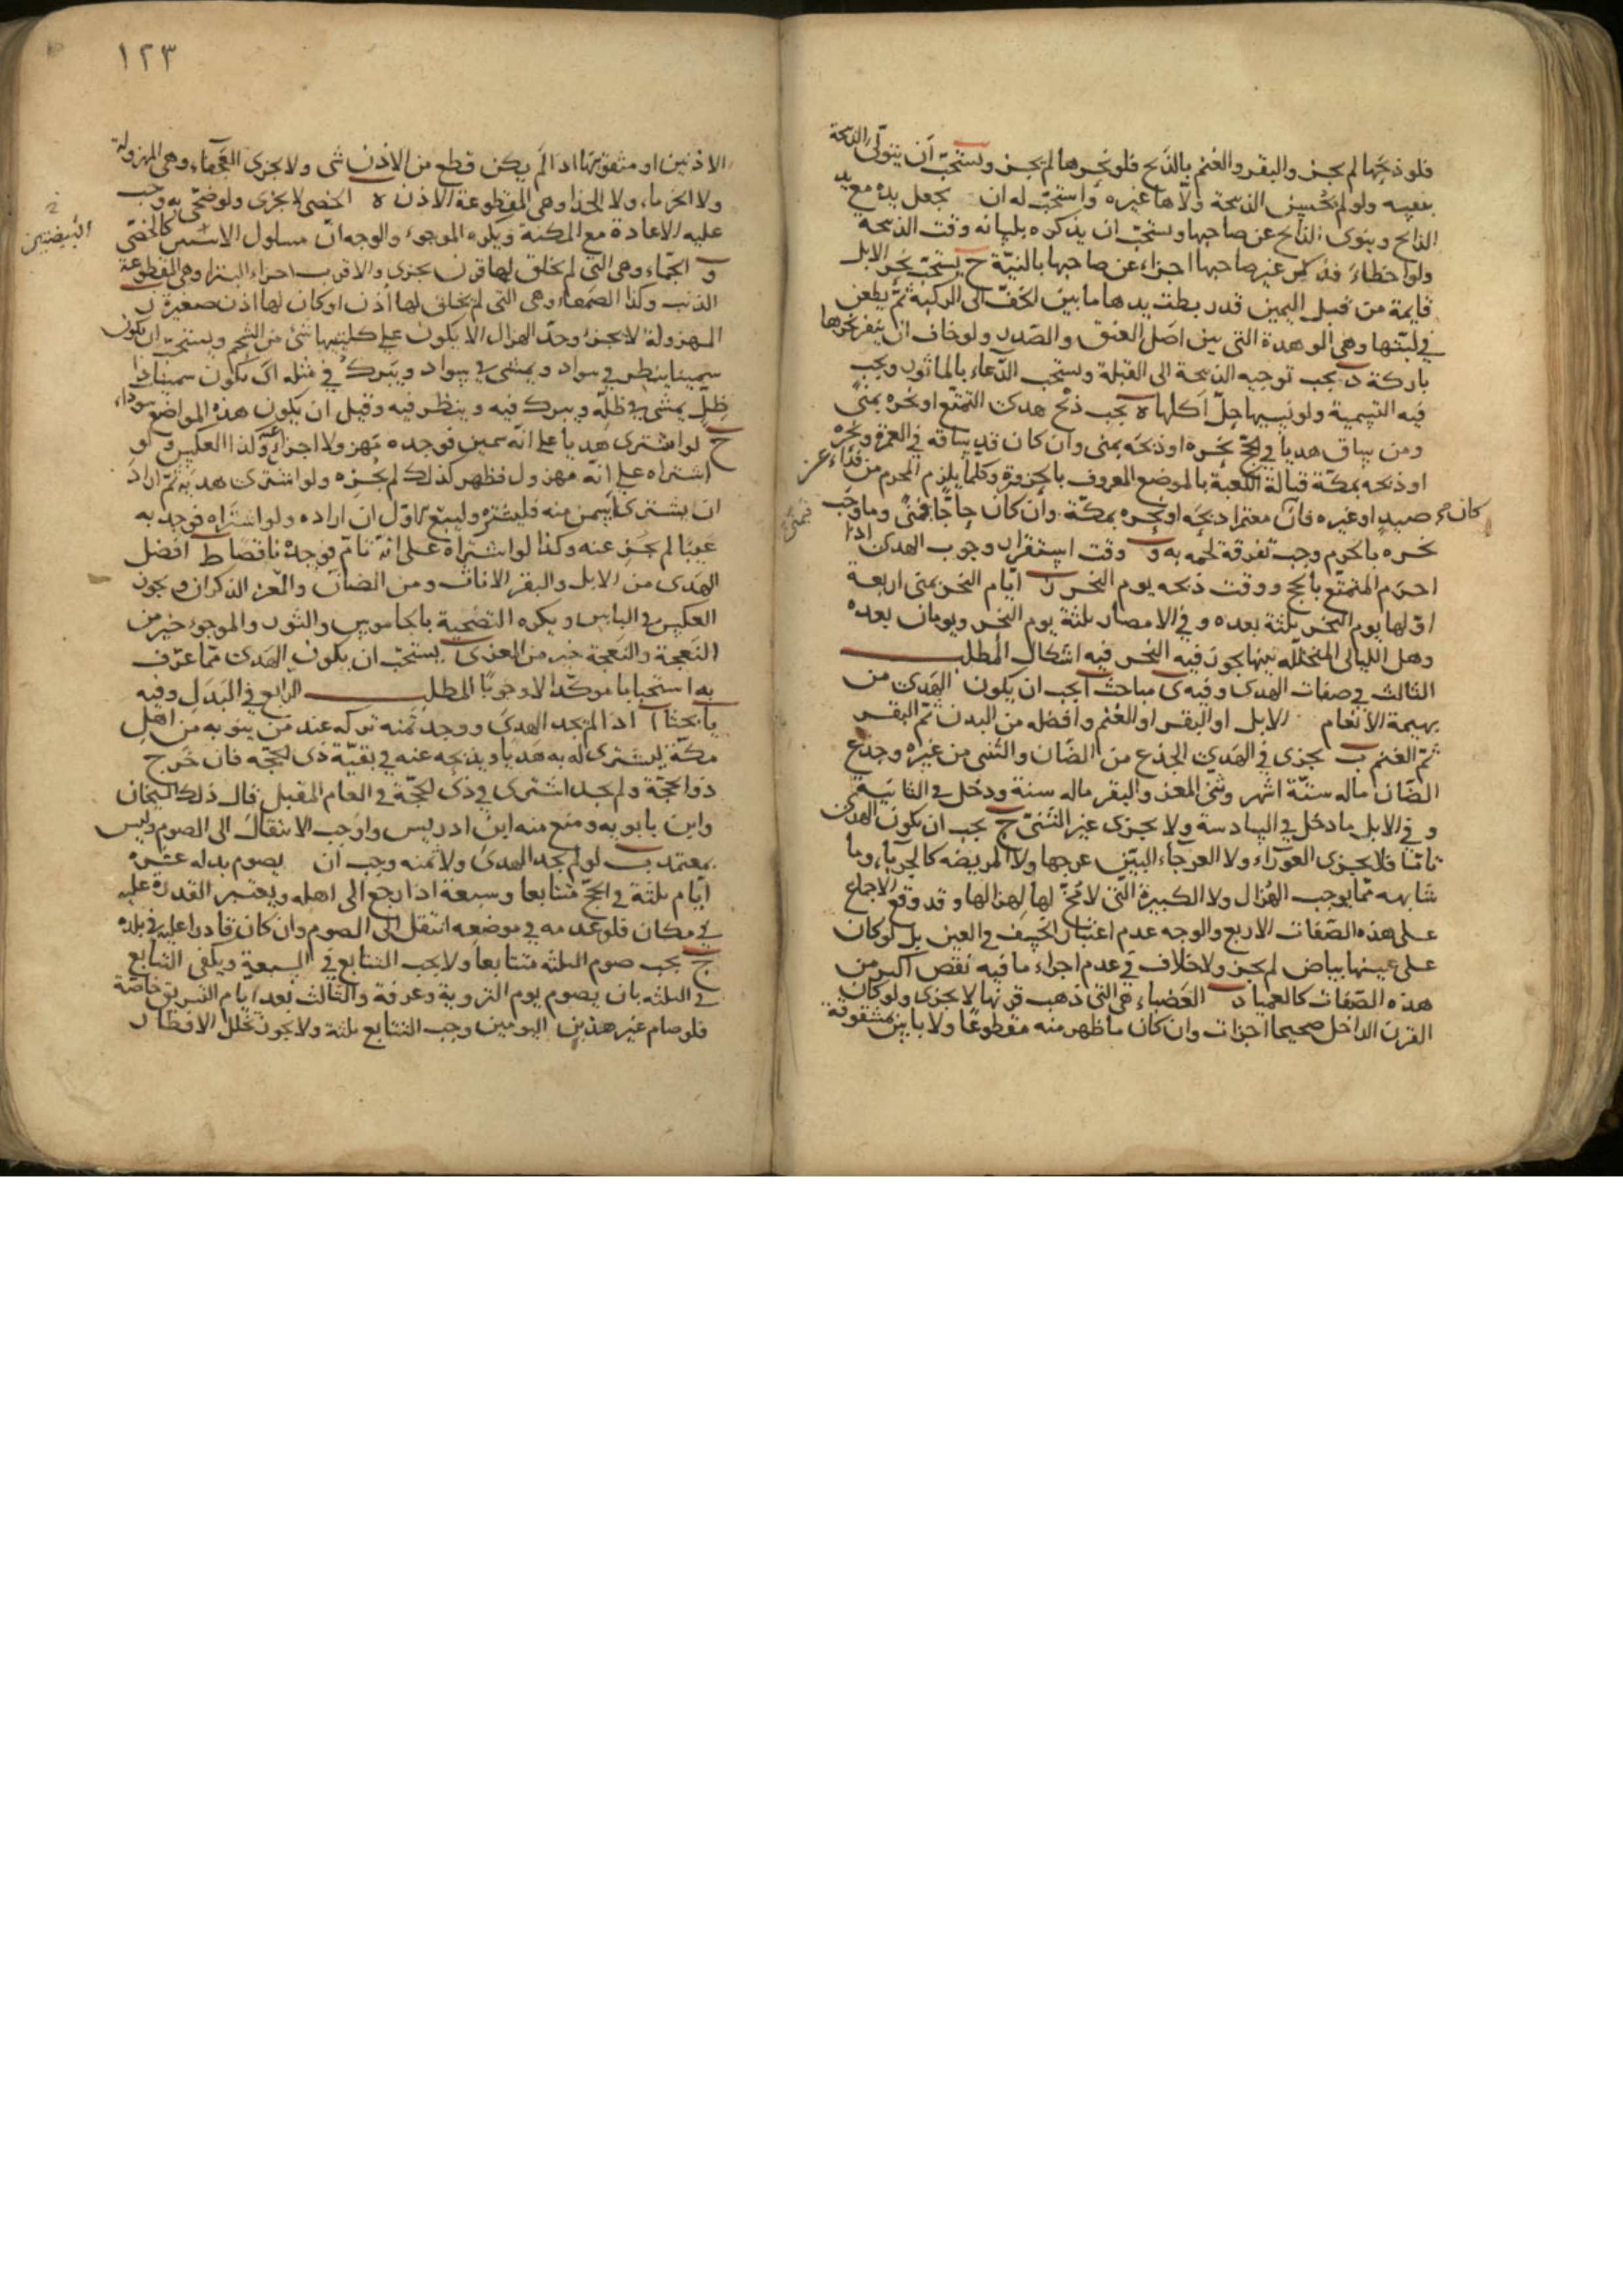 فلو ذبحها لم يجز والبقر والغنم بالذبح فلو نحرها لم يجز ويستحب ان يتولى الذبيحة
بنفسه ولو لم يحسن الذبيحة ولّاها غيره واستحب له ان يجعل يده مع يد
الذابح وينوى الذابح عن صاحبها ويستحب ان يذكره بلسانه وقت الذبيحة
ولو اخطاء فذكر غير صاحبها اجزاء عن صاحبها بالنية ح يستحب نحر الابل
قايمة من قبل اليمين قد ربطت يدها ما بين الخف الى الركبة ثم يطعن
في لبتها وهي الوهدة التى بين اصل العنق والصدر ولو خاف ان ينفر نحرها
باركة د يجب توجيه الذبيحة الى القبلة ويستحب الدعاء بالماثور ويجب
فيه التسمية ولو نسيها حل اكلها ه يجب ذبح هدى التمتع او نحره بمنى
ومن ساق هديا في الحج نحره او ذبحه بمنى وان كان قد ساقه في العمرة نحره
او ذبحه بمكة قبالة الكعبة بالموضع المعروف بالحزورة وكلما يلزم المحرم من فداء عن
صيد او غيره فان كان معتمرا ذبحه او نحره بمكة وان كان حاجا فمنى وما وجب
نحره بالحرم وجب تفرقة لحمه به و وقت استقرار وجوب الهدى اذا
احرم المتمتع بالحج ووقت ذبحه يوم النحر ز ايام النحر بمنى اربعة
اولها يوم النحر وثلثة بعده وفي الامصار ثلثة يوم النحر ويومان بعده
وهل الليالى المتخللة بينها يجوز فيه النحر فيه اشكال المطلب
الثالث في صفات الهدى وفيه ى مباحث ا يجب ان يكون الهدى من
بهيمة الانعام الابل او البقر او الغنم وافضله من البدن ثم البقر
ثم الغنم ب يجزى في الهدى الجذع من الضان والثنى من غيره وجذع
الضان ماله ستة اشهر وثنى المعز والبقر ماله سنة ودخل في الثانية
وفي الابل ما دخل في السادسة ولا يجزى غير الثنى ج يجب ان يكون الهدى
تاما فلا يجزى العوراء ولا العرجاء البين عرجها ولا المريضه كالجرباء وما
شابهه مما يوجب الهزال ولا الكبيرة التى لا مخ لها لهزالها وقد وقع الاجماع
على هذه الصفات الاربع والوجه عدم اعتبار الخسف في العين بل لو كان
على عينها بياض لم يجز ولا خلاف في عدم اجزاء ما فيه نقص اكبر من
هذه الصفات كالعميا د العضباء هى التى ذهب قرنها لا يجزى ولو كان
القرن الداخل صحيحا اجزات وان كان ما ظهر منه مقطوعا ولا باس بمشقوقة
١٢٣
الاذنين او مثقوبتها اذا لم يكن قطع من الاذن شى ولا يجزى العجفاء وهى المهزولة
ولا الخرماء ولا الجذا وهى المقطوعة الاذن ه الخصى لا يجزى ولو ضحى به وجب
عليه الاعادة مع المكنة ويكره الموجوء والوجه ان مسلول كالخصى
البيضتين
و الجماء وهى التى لم يخلق لها قرن يجزى والاقرب اجزاء البتراء وهى المقطوعة
الذنب وكذا الصمعاء وهى التى لم يخلق لها اذن او كان لها اذن صغيرة ز
المهزولة لا يجزئ وحد الهزال الا يكون على كليتيها شئ من الشحم ويستحب ان يكون
سمينا ينظر في سواد ويمشى في سواد ويبرك في مثله اى يكون سمينا ذا
ظل يمشى في ظله ويبرك فيه وينظر فيه وقيل ان يكون هذه المواضع سوداء
ح لو اشترى هديا على انه سمين فوجده مهزولا اجزاء عنه وكذا العكس ولو
اشتراه على انه مهزول فظهر كذلك لم يجزه ولو اشترى هديه ثم اراد
ان يشترى اسمن منه فليشتره وليبع الاول ان اراده ولو اشتراه فوجد به
عيبا لم يجز عنه وكذا لو اشتراه على انه تام فوجده ناقصا ط افضل
الهدى من الابل والبقر الاناث ومن الضان والمعز الذكران ويجوز
العكس في البابين ويكره التضحية بالجاموس والثور والموجوء خير من
النعجة والنعجة خير من المعز ى يستحب ان يكون الهدى مما عرف
به استحبابا موكدا لا وجوبا المطلب الرابع في البدل وفيه
يا بحثا ا اذا لم يجد الهدى ووجد ثمنه تركه عند من يثق به من اهل
مكة ليشترى له به هديا ويذبحه عنه في بقية ذى الحجه فان خرج
ذو الحجة ولم يجد اشترى في ذى الحجة في العام المقبل قال ذلك الشيخان
وابن بابويه ومنع منه ابن ادريس واوجب الانتقال الى الصوم وليس
بمعتمد ب لو لم يجد الهدى ولا ثمنه وجب ان يصوم بدله عشرة
ايام ثلثة في الحج متتابعا وسبعة اذا رجع الى اهله ويعتبر القدرة عليه
في مكان فلو عدمه في موضعه انتقل الى الصوم وان كان قادرا عليه في بلده
ج يجب صوم الثلثه متتابعا ولا يجب التتابع في السبعة ويكفى التتابع
في الثلثه بان يصوم يوم التروية وعرفة والثالث بعد ايام التشريق خاصة
فلو صام غير هذين اليومين وجب التتابع ثلثة ولا يجوز تخلل الافطار